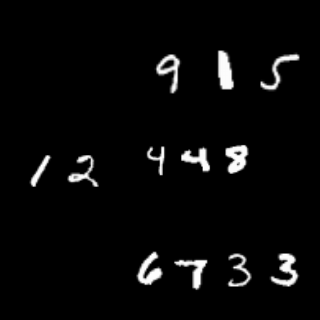 9 1 5
1 2 4 4 8
6 7 3 3